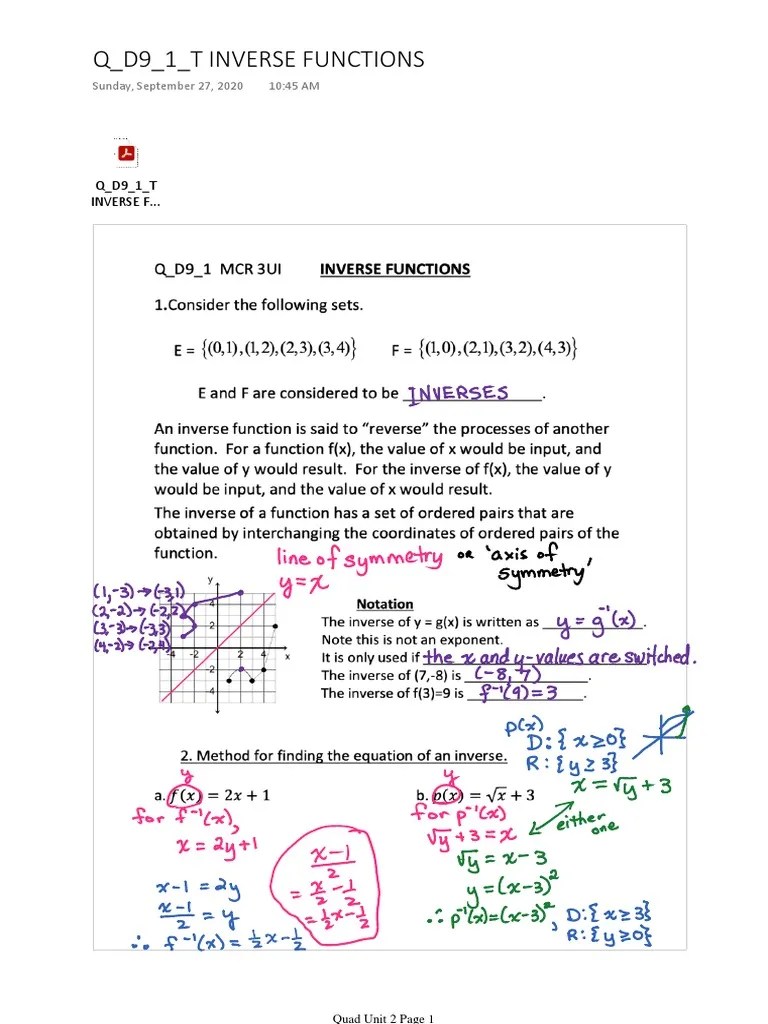 Q_D9_1_T INVERSE FUNCTIONS
Sunday, September 27, 2020 10:45 AM
Q_D9_1_T
INVERSE F...
Q_D9_1 MCR 3UI INVERSE FUNCTIONS
1.Consider the following sets.
E = {(0,1),(1,2),(2,3),(3,4)} F = {(1,0),(2,1),(3,2),(4,3)}
E and F are considered to be INVERSES.
An inverse function is said to “reverse” the processes of another
function. For a function f(x), the value of x would be input, and
the value of y would result. For the inverse of f(x), the value of y
would be input, and the value of x would result.
The inverse of a function has a set of ordered pairs that are
obtained by interchanging the coordinates of ordered pairs of the
function.
line of symmetry or 'axis of
symmetry'
y=x
(1,-3)→(-3,1)
(2,-2)→(-2,2)
(3,-3)→(-3,3)
(4,-2)→(-2,4)
y
4
2
-4 -2 2 4 x
-2
-4
Notation
The inverse of y = g(x) is written as y = g⁻¹(x).
Note this is not an exponent.
It is only used if the x and y-values are switched.
The inverse of (7,-8) is (-8, 7).
The inverse of f(3)=9 is f⁻¹(9) = 3.
2. Method for finding the equation of an inverse.
p(x)
D:{x≥0}
R:{y≥3}
y
a. f(x) = 2x + 1
for f⁻¹(x),
x = 2y+1
x-1 = 2y
x-1/2 = y
∴ f⁻¹(x) = 1/2x-1/2
x-1/2
= x/2 - 1/2
= 1/2x - 1/2
y
b. p(x) = √x + 3
for p⁻¹(x)
√y + 3 = x
x = √y + 3
either
one
√y = x - 3
y = (x-3)²
∴ p⁻¹(x) = (x-3)², D:{x≥3}
R:{y≥0}
Quad Unit 2 Page 1